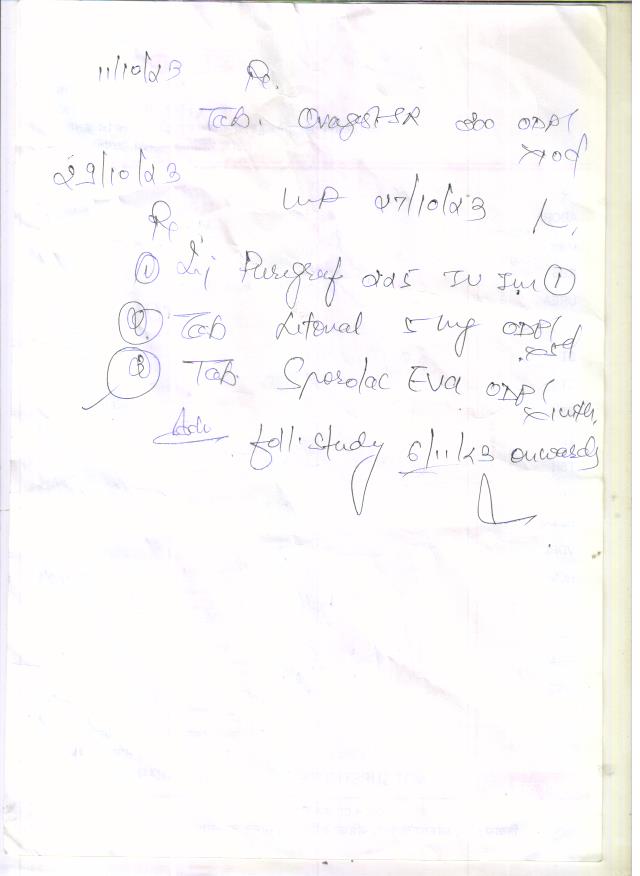 11/10/23 Rx.
Tab. OvagestSR 300 ODPC
x10d
29/10/23
LMP 27/10/23
Rx
① Inj Puregraf 225 IU Im ①
②. Tab Litonal 5 mg ODPC
x5d
③ Tab. Sporolac EVA ODPC
x1mth.
Adv foll. study 6/11/23 onwards